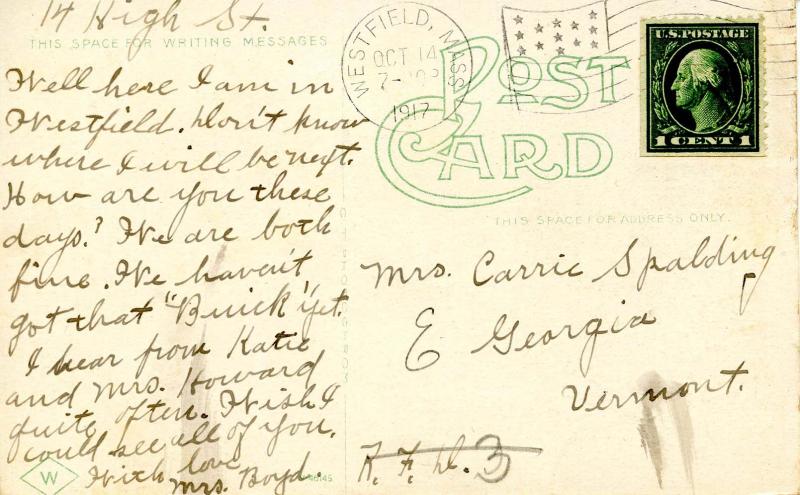 14 High St.
THIS SPACE FOR WRITING MESSAGES
Well here I am in
Westfield. Don't know
where I will be next.
How are you these
days? We are both
fine. We haven't
got that "Buick" yet.
I hear from Katie
and Mrs. Howard
quite often. Wish I
could see all of you.
With love
Mrs. Boyd.
W
WESTFIELD, MASS.
OCT 14
1917
POST
CARD
U.S. POSTAGE
1 CENT 1
THIS SPACE FOR ADDRESS ONLY.
Mrs. Carrie Spalding
E Georgia
Vermont.
R. F. D. 3